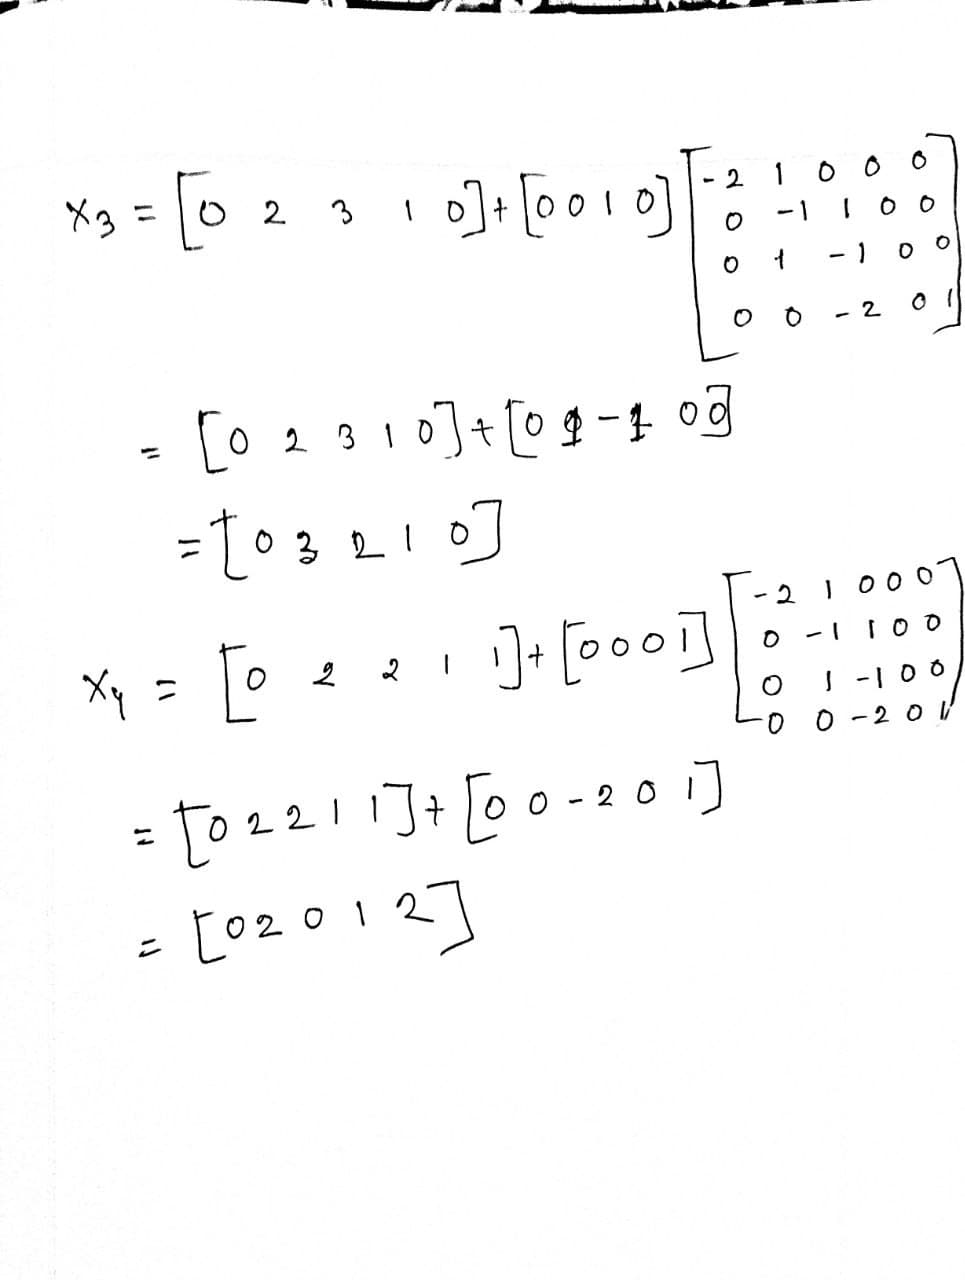 X3 = [0 2 3 1 0] + [0 0 1 0] [-2 1 0 0 0
0 -1 1 0 0
0 1 -1 0 0
0 0 -2 0 1]
= [0 2 3 1 0] + [0 1 -1 0 0]
= [0 3 2 1 0]
X4 = [0 2 2 1 1] + [0 0 0 1] [-2 1 0 0 0
0 -1 1 0 0
0 1 -1 0 0
0 0 -2 0 1]
= [0 2 2 1 1] + [0 0 -2 0 1]
= [0 2 0 1 2]